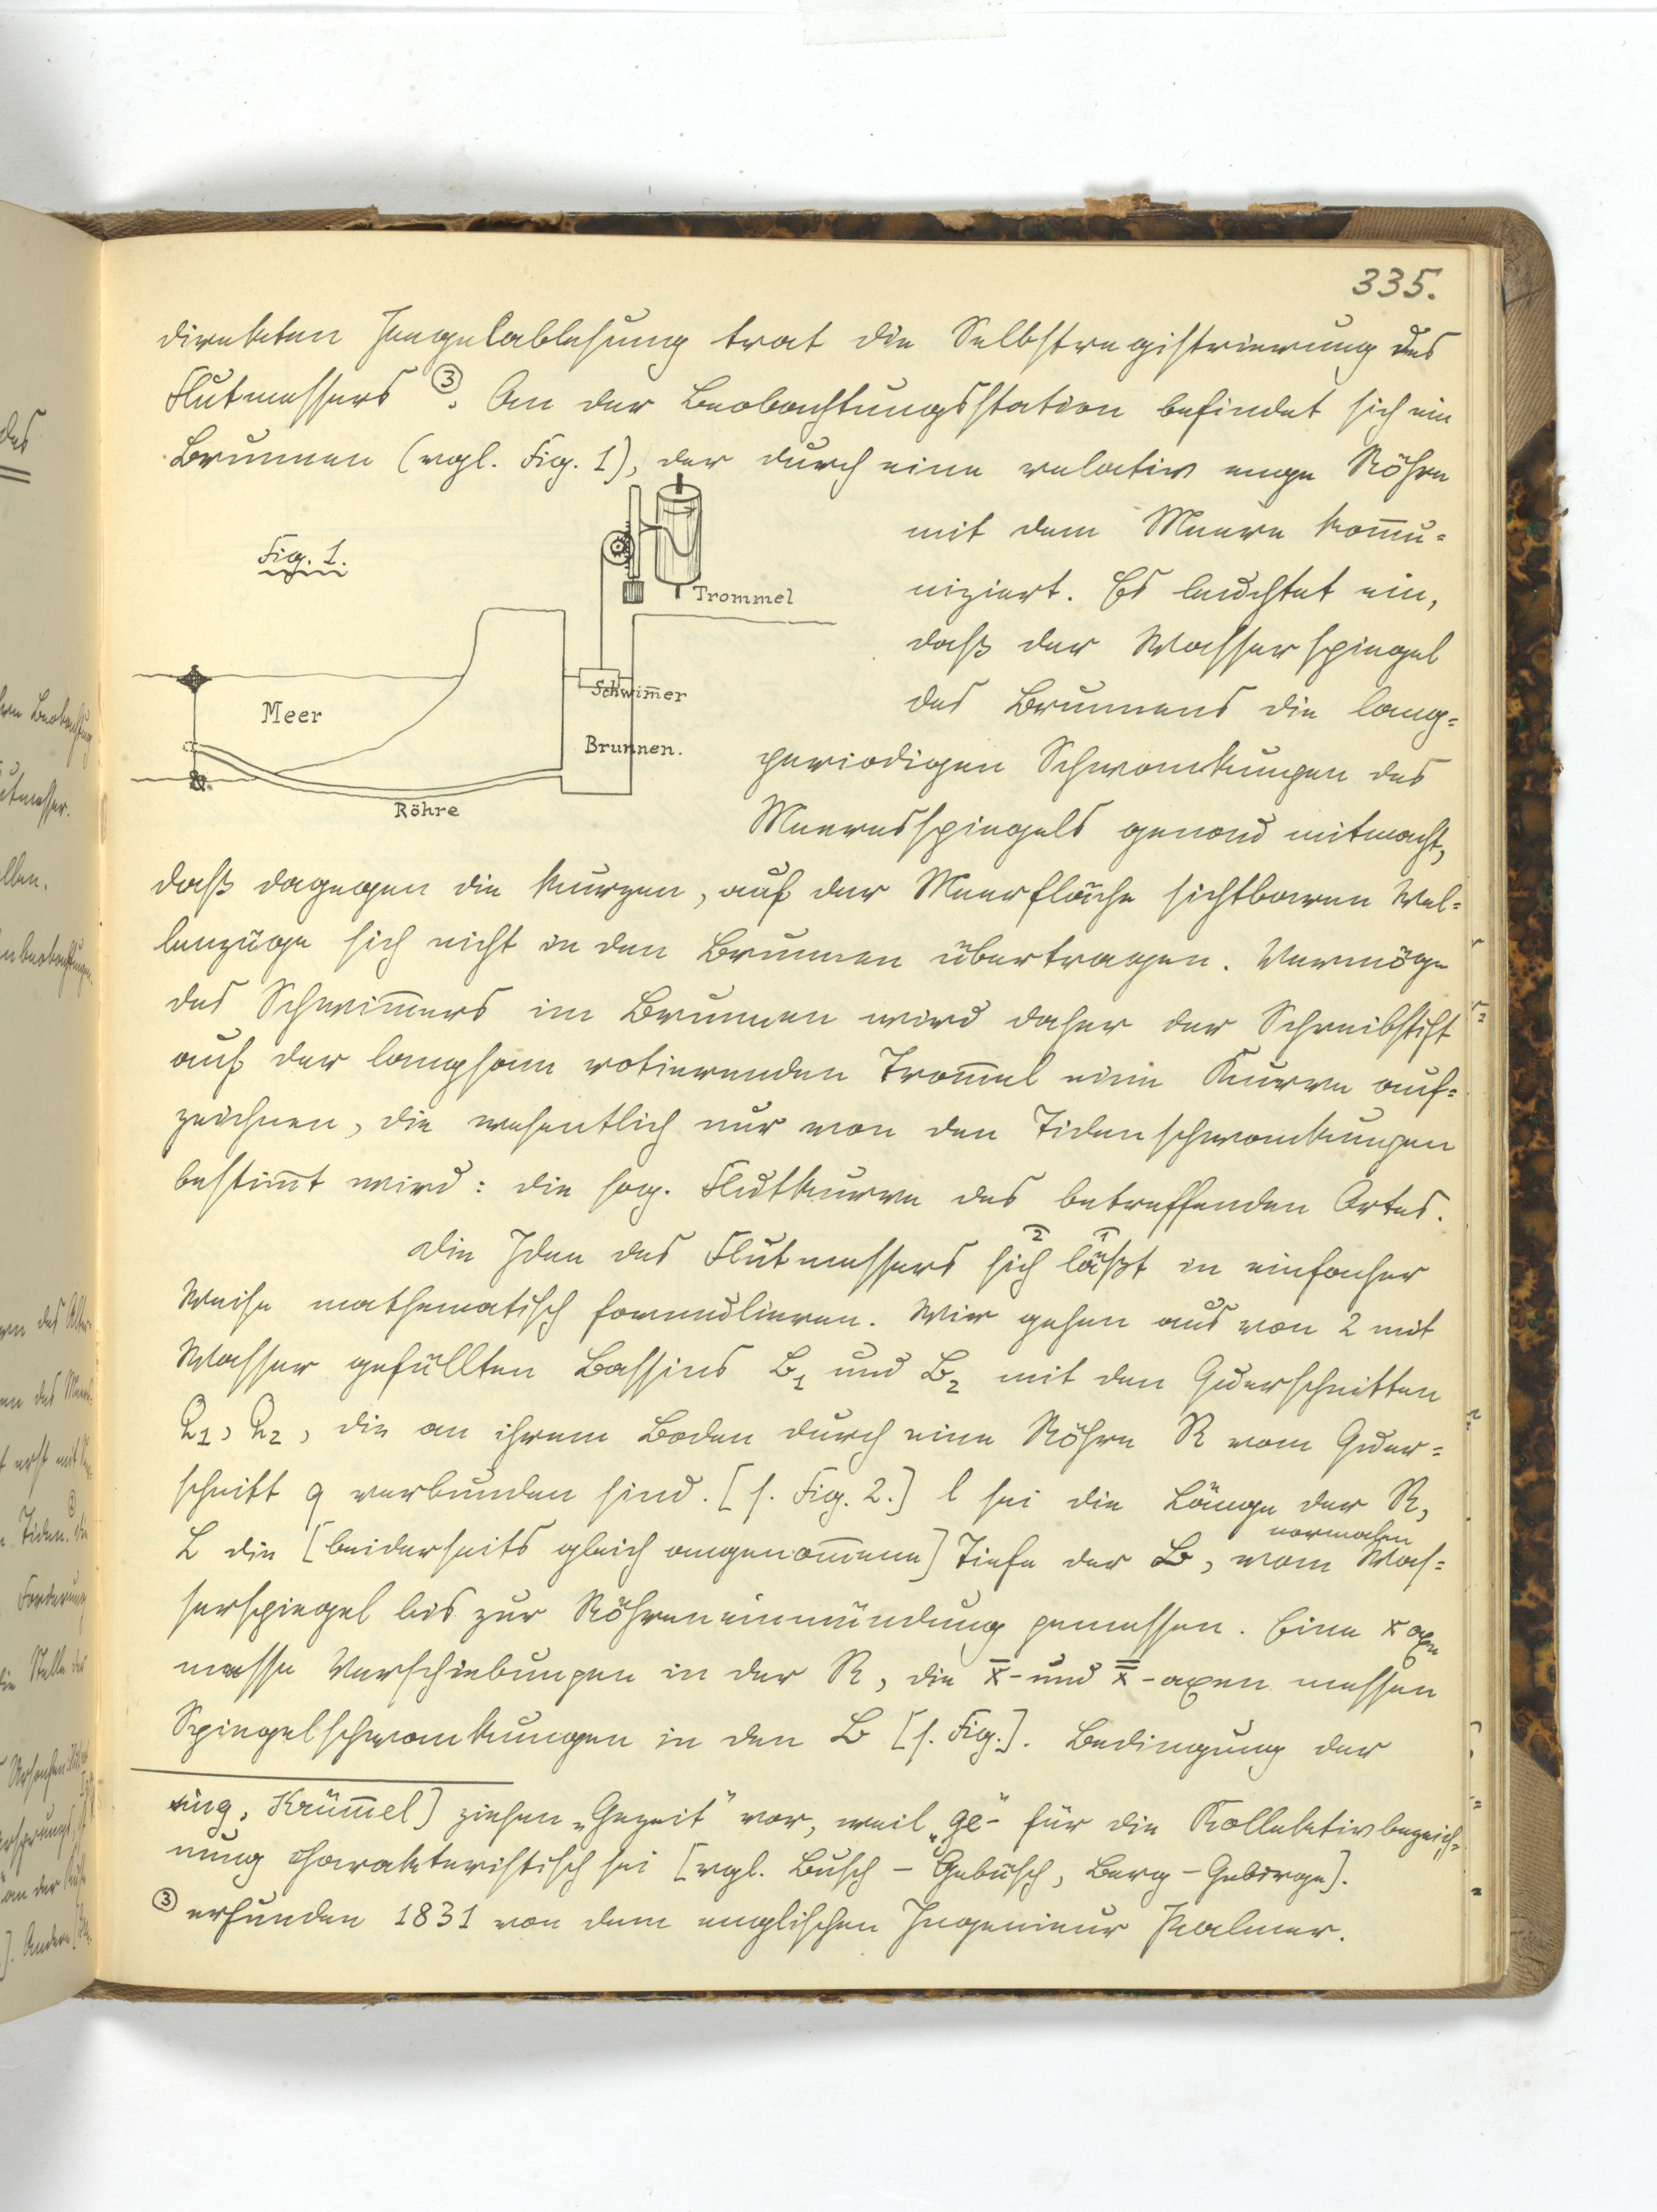 335.
direkten Pegelablesung trat die Selbstregistrierung des
Flutmessers ③. An der Beobachtungsstation befindet sich ein
Brunnen (vgl. Fig. 1), der durch eine relativ enge Röhre
mit dem Meere kom̅u-
niziert. Es leuchtet ein,
daß der Wasserspiegel
des Brunnens die lang-
periodigen Schwankungen des
Meeresspiegels genau mitmacht,
Fig. 1.
Trommel
Schwim̅er
Meer
Brunnen.
Röhre
daß dagegen die kurzen, auf der Meerfläche sichtbaren Wel-
lenzüge sich nicht in den Brunnen übertragen. Vermöge
des Schwim̅ers im Brunnen wird daher der Schreibstift
auf der langsam rotierenden Trom̅el eine Kurve auf-
zeichnen, die wesentlich nur von den Tidenschwankungen
bestim̅t wird: die sog. Flutkurve des betreffenden Ortes.
Die Idee des Flutmessers sich läßt in einfacher
2 1
Weise mathematisch formulieren. Wir gehen aus von 2 mit
Wasser gefüllten Bassins B₁ und B₂ mit den Querschnitten
Q₁, Q₂, die an ihrem Boden durch eine Röhre R vom Quer-
schnitt q verbunden sind. [s. Fig. 2.] l sei die Länge der R,
L die [beiderseits gleich angenom̅ene] Tiefe der B, vom normalen Was-
serspiegel bis zur Röhreneinmündung gemessen. Eine x axe
messe Verschiebungen in der R, die x̄- und x̿-axen messen
Spiegelschwankungen in den B [s. Fig.]. Bedingung der
ing, Krüm̅el] ziehen „Gezeit" vor, weil „Ge-" für die Kollektivbezeich-
nung charakteristisch sei [vgl. Busch – Gebüsch, Berg – Gebirge].
③ erfunden 1831 von dem englischen Ingenieur Palmer.